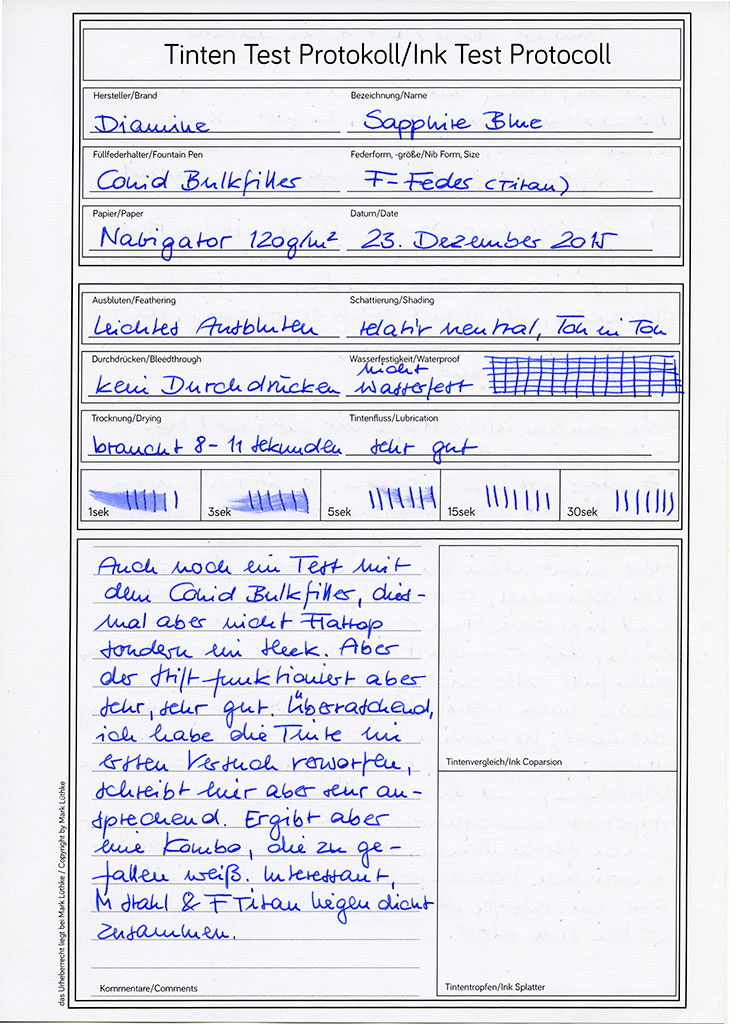 Tinten Test Protokoll/Ink Test Protocoll
Hersteller/Brand
Bezeichnung/Name
Diamine
Sapphire Blue
Füllfederhalter/Fountain Pen
Federform, -größe/Nib Form, Size
Conid Bulkfiller
F-Feder (Titan)
Papier/Paper
Datum/Date
Navigator 120g/m²
23. Dezember 2015
Ausbluten/Feathering
Schattierung/Shading
leichtes Ausbluten
relativ neutral, Ton in Ton
Durchdrücken/Bleedthrough
Wasserfestigkeit/Waterproof
kein Durchdrücken
nicht
wasserfest
Trocknung/Drying
Tintenfluss/Lubrication
braucht 8-11 sekunden
sehr gut
1sek
3sek
5sek
15sek
30sek
Auch noch ein Test mit
dem Conid Bulkfiller, dies-
mal aber nicht Flattop
sondern ein Sleek. Aber
der Stift funktioniert aber
sehr, sehr gut. Überraschend,
ich habe die Tinte im
ersten Versuch verworfen,
schreibt hier aber sehr an-
sprechend. Ergibt aber
eine Kombo, die zu ge-
fallen weiß. Interessant,
M Stahl & F Titan liegen dicht
zusammen.
Kommentare/Comments
Tintenvergleich/Ink Coparsion
Tintentropfen/Ink Splatter
das Urheberrecht liegt bei Mark Lüthke / Copyright by Mark Lüthke